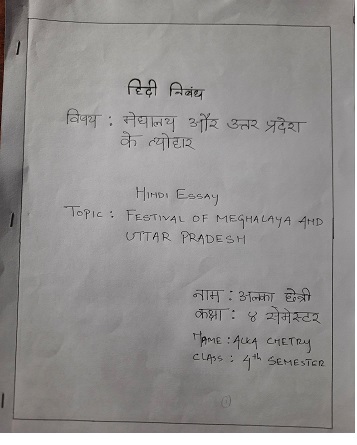 हिंदी निबंध
विषय : मेघालय और उत्तर प्रदेश
के त्योहार
HINDI ESSAY
TOPIC : FESTIVAL OF MEGHALAYA AND
UTTAR PRADESH
नाम : अलका छेत्री
कक्षा : ४ सेमेस्टर
NAME : ALKA CHETRY
CLASS : 4th SEMESTER